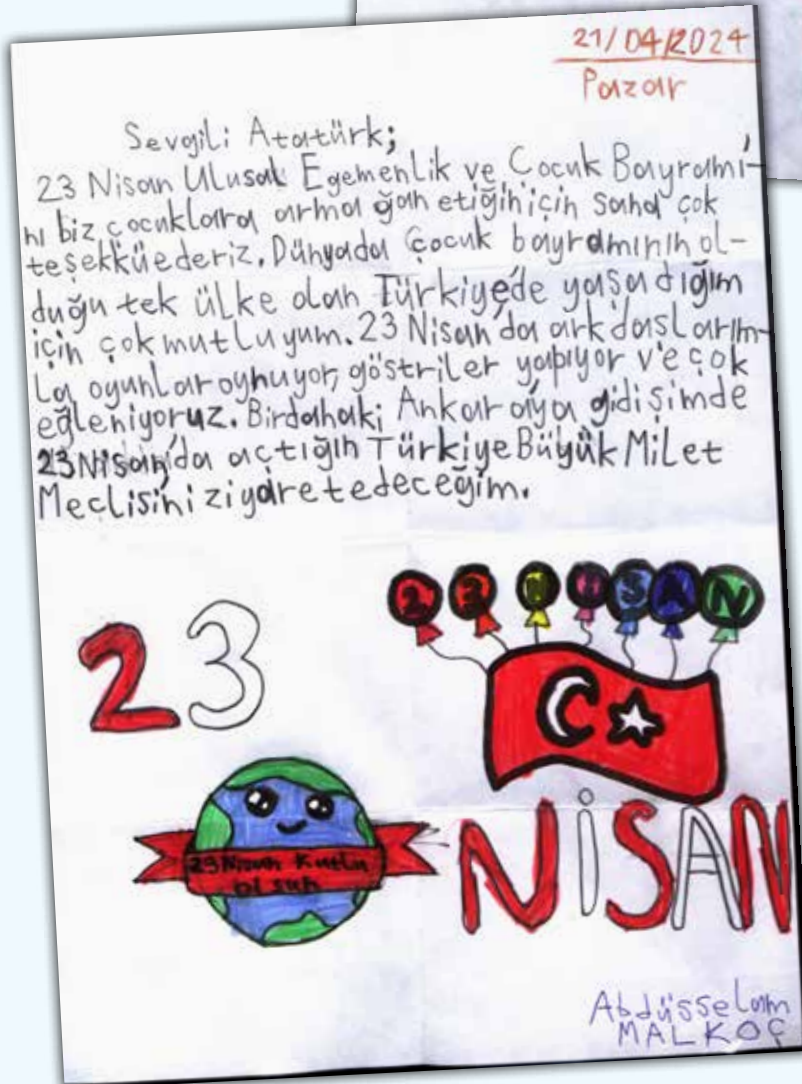 21/04/2024
Pazar
Sevgili Atatürk;
23 Nisan Ulusal Egemenlik ve Çocuk Bayramı-
nı biz çocuklara arma ğan etiğin için sana çok
teşekküederiz. Dünyada Çocuk bayramının ol-
duğu tek ülke olan Türkiye'de yaşadığım
için çok mutluyum. 23 Nisan'da arkdaşlarım-
la oyunlar oynuyor, göstriler yapıyor ve çok
eğleniyoruz. Birdahaki Ankara'ya gidişimde
23 Nisan'da açtığın Türkiye Büyük Milet
Meclisini ziyaret edeceğim.
2 3 N İ S A N
23
23 Nisan Kutlu
olsun
NİSAN
Abdüsselam
MALKOÇ